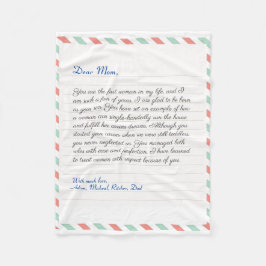 Dear Mom,
You are the first woman in my life, and I
am such a fan of yours. I am glad to be born
as your son. You have set an example of how
a woman can single-handedly run the house
and fulfill her career dreams. Although you
started your career when we were still toddlers
you never neglected us. You managed both
roles with ease and perfection. I have learned
to treat women with respect because of you.
With much love,
-Adam, Michael, Richar, Dad